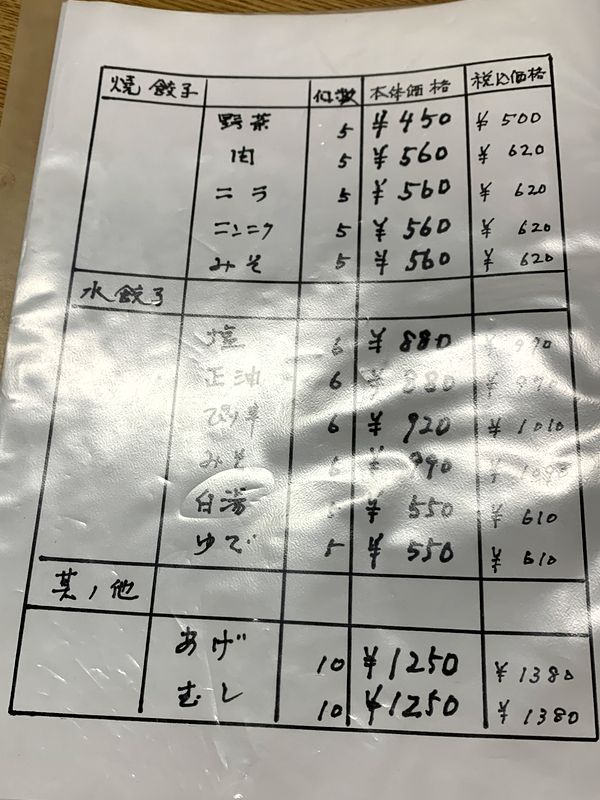 焼餃子 個数 本体価格 税込価格
野菜 5 ¥450 ¥500
肉 5 ¥560 ¥620
ニラ 5 ¥560 ¥620
ニンニク 5 ¥560 ¥620
みそ 5 ¥560 ¥620
水餃子
塩 6 ¥880 ¥970
正油 6 ¥880 ¥970
ぴり辛 6 ¥920 ¥1010
みそ ¥990
白湯 ¥550 ¥610
ゆで 5 ¥550 ¥610
其ノ他
あげ 10 ¥1250 ¥1380
むし 10 ¥1250 ¥1380